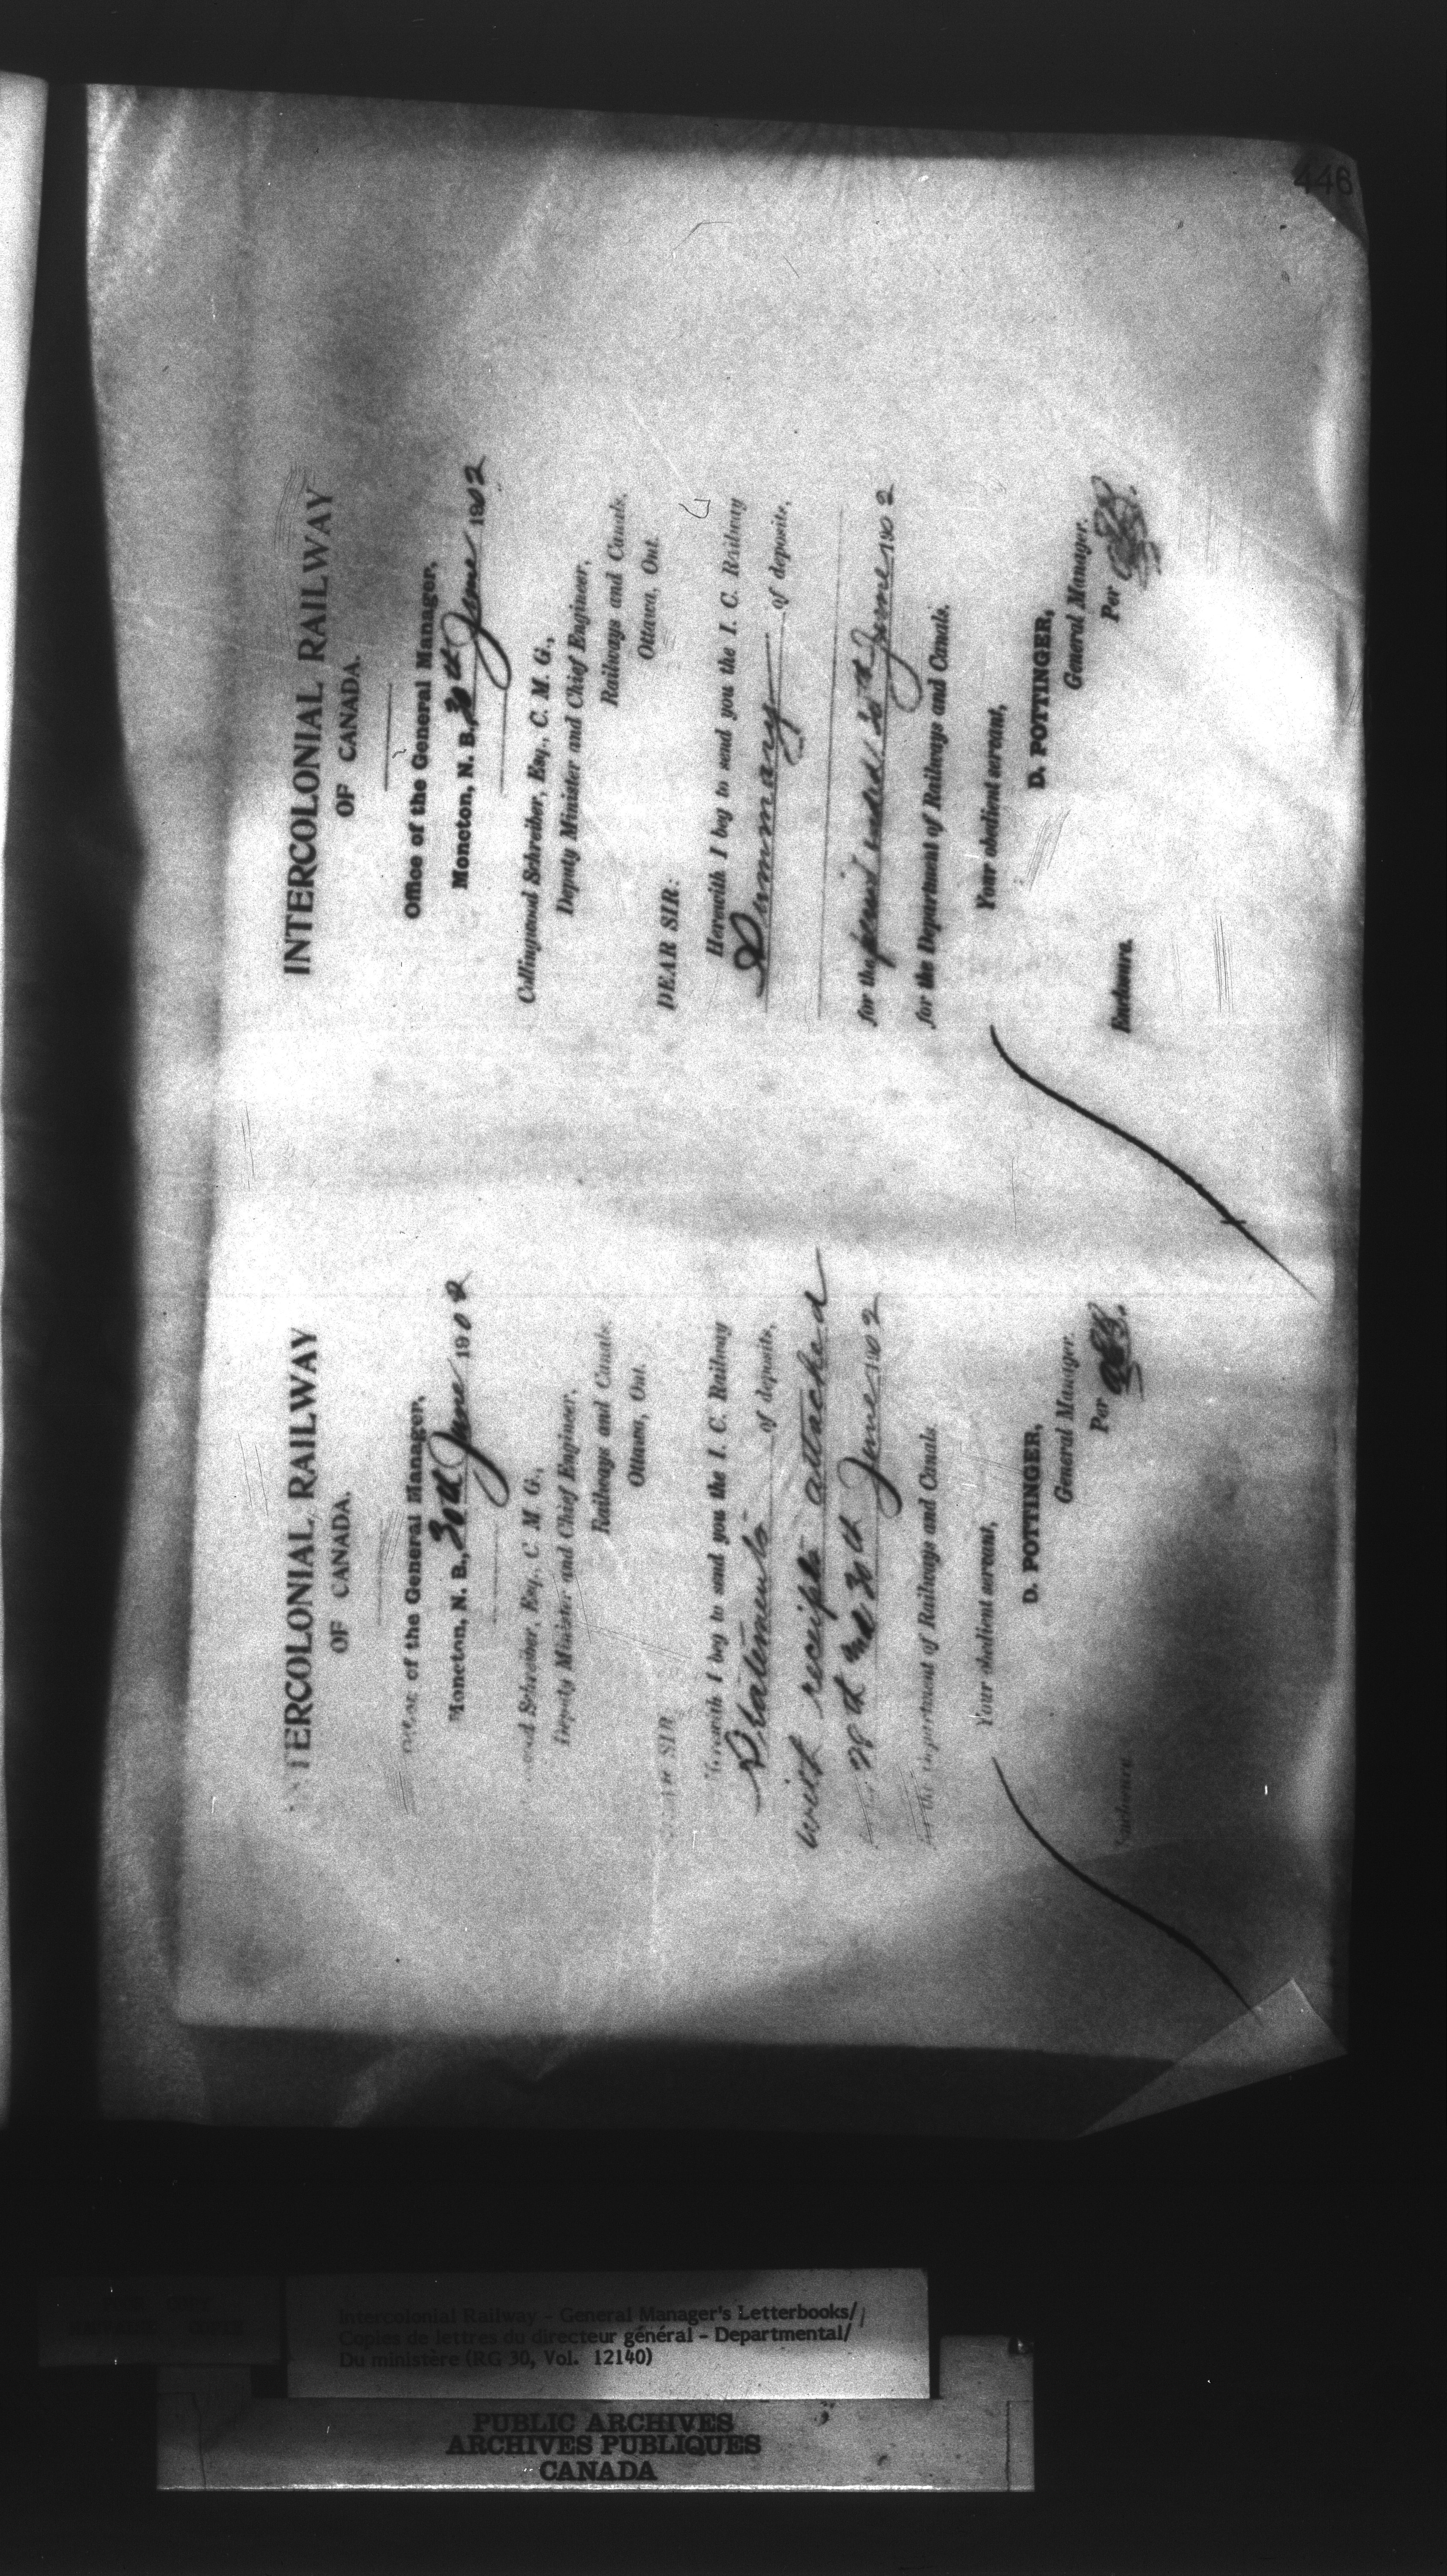 446
INTERCOLONIAL RAILWAY
OF CANADA.
of the General Manager,
Moncton, N. B., 30th June 1902
Schreiber, Esq., C. M. G.,
Deputy Minister and Chief Engineer,
Railways and Canals,
Ottawa, Ont.
SIR
Herewith I beg to send you the I. C. Railway
Statements of deposits,
with receipts attached
28th and 30th June 1902
for the Department of Railways and Canals.
Your obedient servant,
D. POTTINGER,
General Manager.
Per
Enclosure
INTERCOLONIAL RAILWAY
OF CANADA.
Office of the General Manager,
Moncton, N. B., 30th June 1902
Collingwood Schreiber, Esq., C. M. G.,
Deputy Minister and Chief Engineer,
Railways and Canals,
Ottawa, Ont.
DEAR SIR:
Herewith I beg to send you the I. C. Railway
Summary of deposits,
for the period ended 30th June 1902
for the Department of Railways and Canals.
Your obedient servant,
D. POTTINGER,
General Manager.
Per
Enclosure.
Intercolonial Railway - General Manager's Letterbooks/
Copies de lettres du directeur général - Departmental/
Du ministère (RG 30, Vol. 12140)
PUBLIC ARCHIVES
ARCHIVES PUBLIQUES
CANADA